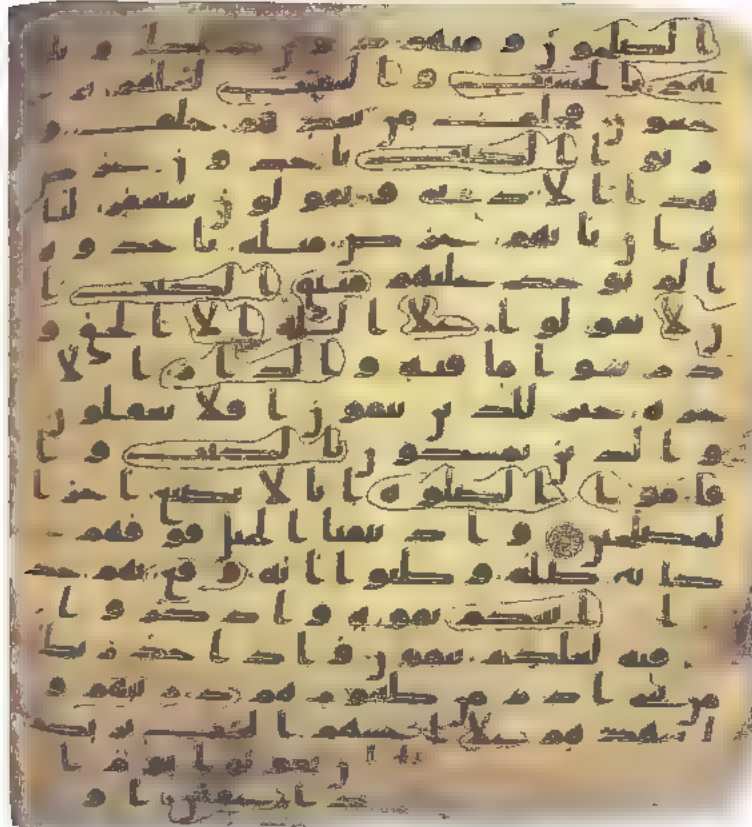 الصلحون ومنهم دون ذلك وبلو
نهم بالحسنت والسيات لعلهم ير
جعون فخلف من بعدهم خلف و
رثوا الكتب ياخذون عرض
هذا الادنى ويقولون سيغفر لنا
وان ياتهم عرض مثله ياخذوه
الم يوخذ عليهم ميثق الكتب ا
ن لا يقولوا على الله الا الحق و
درسوا ما فيه والدار الا
خرة خير للذين يتقون افلا تعقلون
والذين يمسكون بالكتب وا
قاموا الصلوة انا لا نضيع اجر ا
لمصلحين واذ نتقنا الجبل فوقهم
كانه ظلة وظنوا انه واقع بهم خذ
وا ما اتينكم بقوة واذكروا ما
فيه لعلكم تتقون واذ اخذ ربك
من بني ادم من ظهورهم ذريتهم و
اشهدهم على انفسهم الست بر